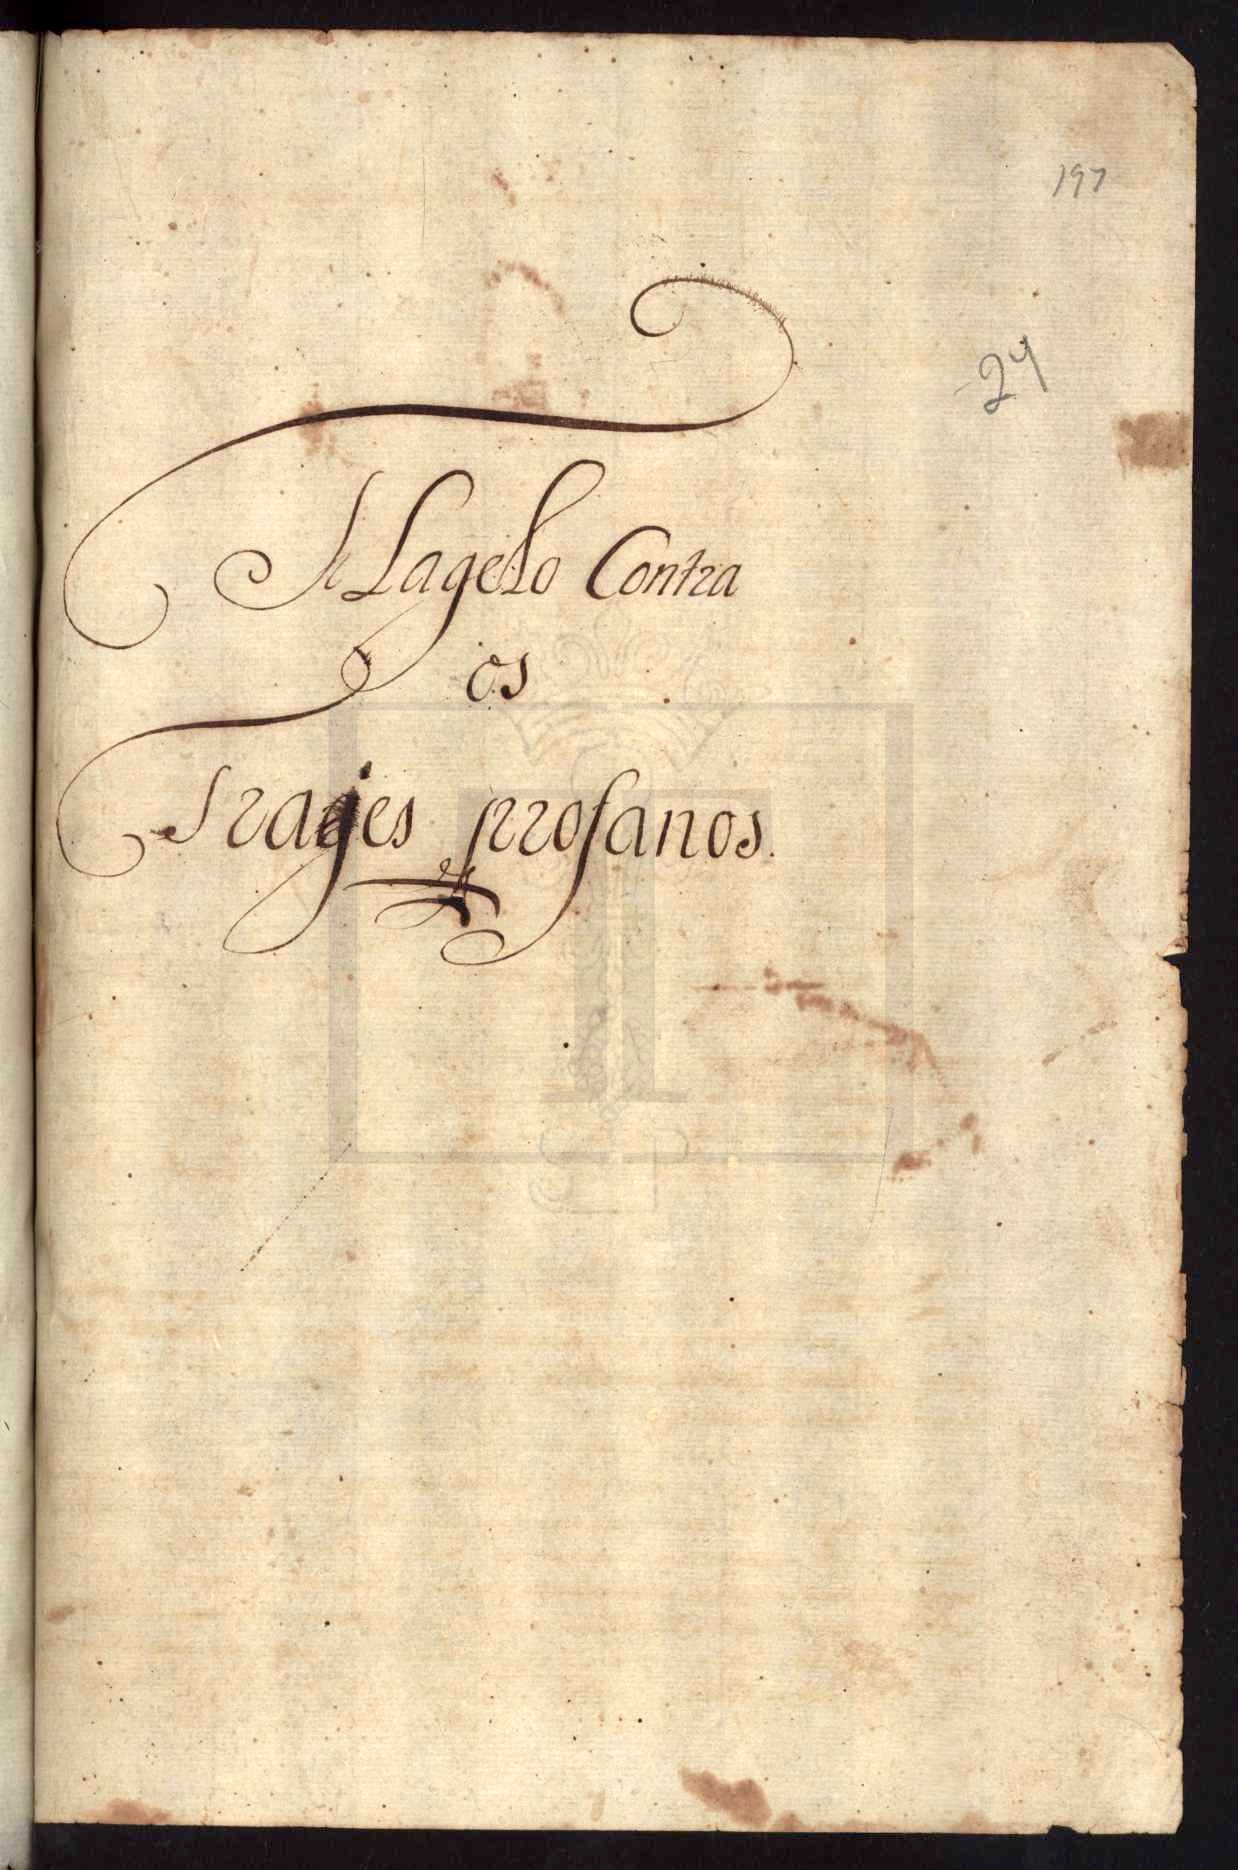 197
24
FLagelo Contra
os
Trajes profanos.